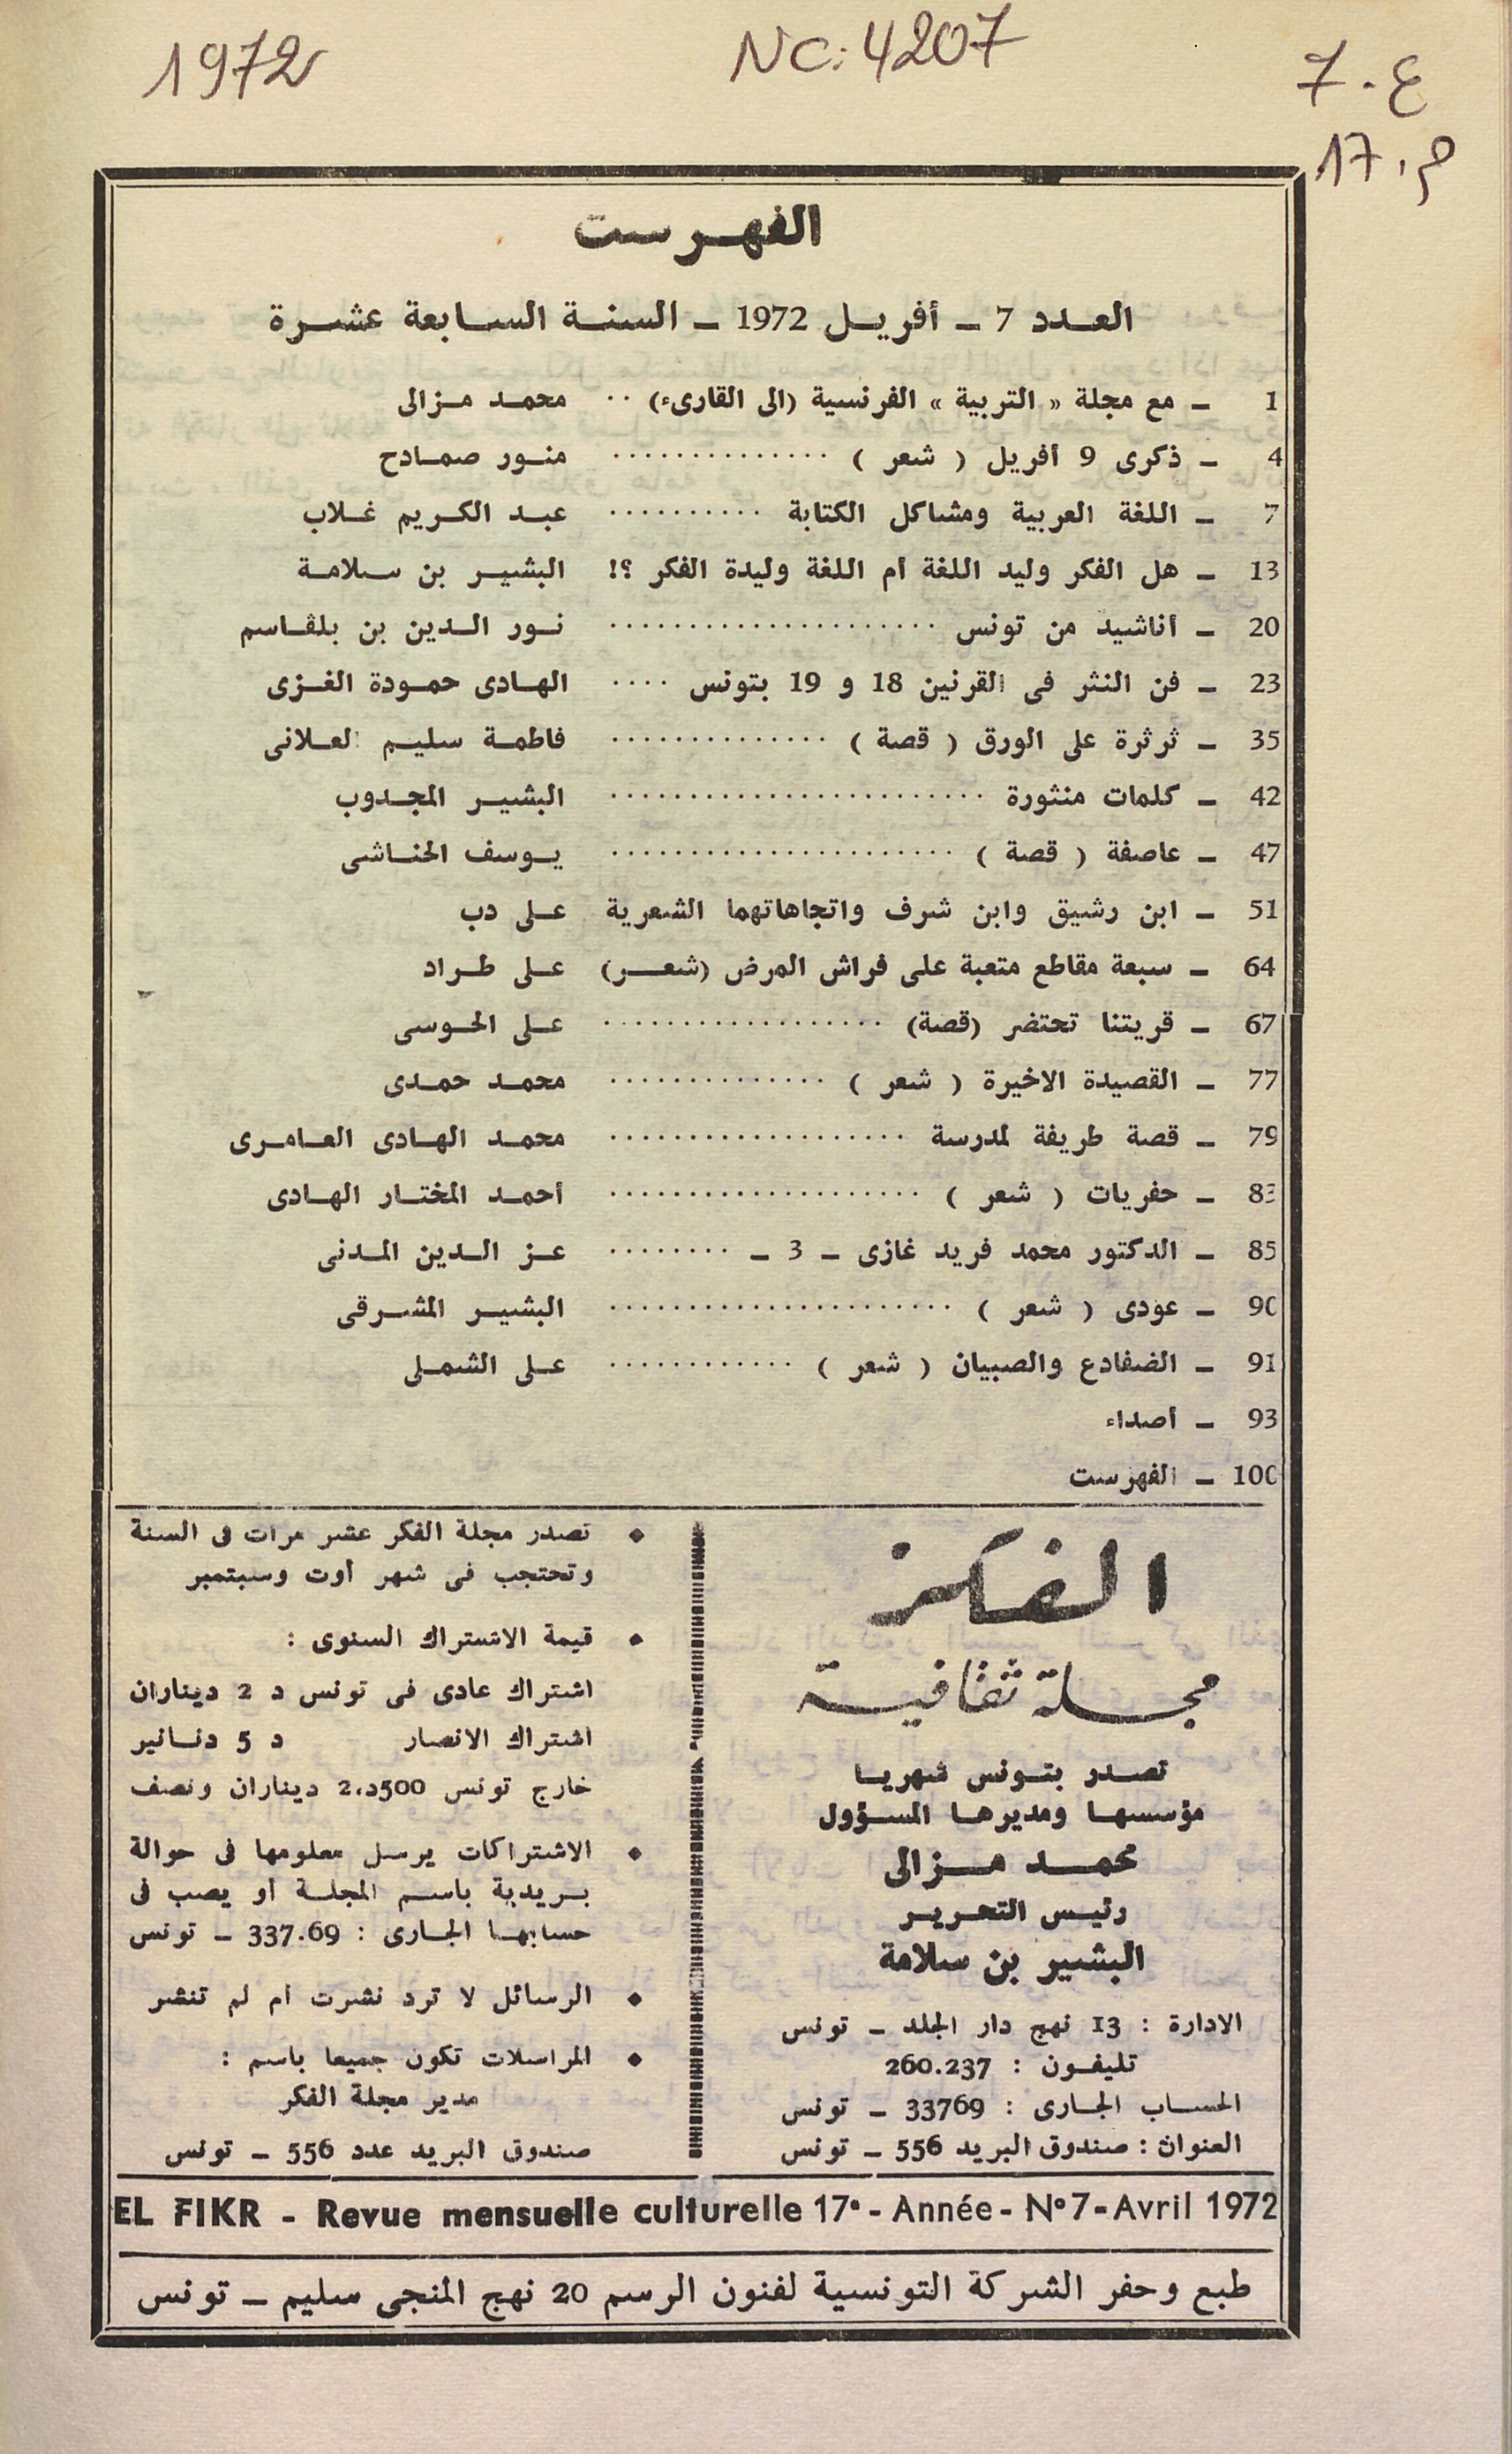 1972
NC: 4207
ع. 7
م. 17
الفهرست
العدد 7 ـ أفريل 1972 ـ السنة السابعة عشرة
1 ـ مع مجلة « التربية » الفرنسية (الى القارىء) .. محمد مزالى
4 ـ ذكرى 9 أفريل ( شعر ) .............. منور صمادح
7 ـ اللغة العربية ومشاكل الكتابة .......... عبد الكريم غلاب
13 ـ هل الفكر وليد اللغة أم اللغة وليدة الفكر ؟! البشير بن سلامة
20 ـ أناشيد من تونس ..................... نور الدين بن بلقاسم
23 ـ فن النثر فى القرنين 18 و 19 بتونس .... الهادى حمودة الغزى
35 ـ ثرثرة على الورق ( قصة ) .............. فاطمة سليم العلانى
42 ـ كلمات منثورة ........................ البشير المجدوب
47 ـ عاصفة ( قصة ) ...................... يوسف الحناشى
51 ـ ابن رشيق وابن شرف واتجاهاتهما الشعرية على دب
64 ـ سبعة مقاطع متعبة على فراش المرض (شعر) على طراد
67 ـ قريتنا تحتضر (قصة) .................. على الحوسى
77 ـ القصيدة الاخيرة ( شعر ) .............. محمد حمدى
79 ـ قصة طريفة لمدرسة ................... محمد الهادى العامرى
83 ـ حفريات ( شعر ) .................... أحمد المختار الهادى
85 ـ الدكتور محمد فريد غازى ـ 3 ـ ........ عز الدين المدنى
90 ـ عودى ( شعر ) ...................... البشير المشرقى
91 ـ الضفادع والصبيان ( شعر ) ............ على الشملى
93 ـ أصداء
100 ـ الفهرست
الفكر
مجلة ثقافية
تصدر بتونس شهريا
مؤسسها ومديرها المسؤول
محمد مزالى
رئيس التحرير
البشير بن سلامة
الادارة : 13 نهج دار الجلد ـ تونس
تليفون : 260.237
الحساب الجارى : 33769 ـ تونس
العنوان : صندوق البريد 556 ـ تونس
♦ تصدر مجلة الفكر عشر مرات فى السنة
وتحتجب فى شهر أوت وسبتمبر
♦ قيمة الاشتراك السنوى :
اشتراك عادى فى تونس د 2 ديناران
اشتراك الانصار د 5 دنانير
خارج تونس 500د،2 ديناران ونصف
♦ الاشتراكات يرسل معلومها فى حوالة
بريدية باسم المجلة أو يصب فى
حسابها الجارى : 337.69 ـ تونس
♦ الرسائل لا ترد نشرت أم لم تنشر
♦ المراسلات تكون جميعا باسم :
مدير مجلة الفكر
صندوق البريد عدد 556 ـ تونس
EL FIKR - Revue mensuelle culturelle 17e - Année - N° 7 - Avril 1972
طبع وحفر الشركة التونسية لفنون الرسم 20 نهج المنجى سليم ـ تونس